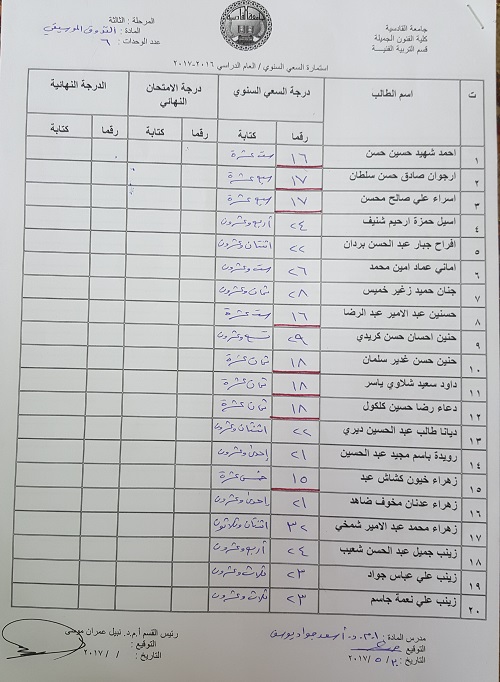 جامعة القادسية
كلية الفنون الجميلة
قسم التربية الفنية
المرحلة : الثالثة
المادة : التذوق الموسيقي
عدد الوحدات : ٦
استمارة السعي السنوي / العام الدراسي ٢٠١٦-٢٠١٧
ت اسم الطالب درجة السعي السنوي درجة الامتحان النهائي الدرجة النهائية
رقما كتابة رقما كتابة رقما كتابة
١ احمد شهيد حسين حسن ١٦ ست عشرة
٢ ارجوان صادق حسن سلطان ١٧ سبع عشرة
٣ اسراء علي صالح محسن ١٧ سبع عشرة
٤ اسيل حمزة ارحيم شنيف ٢٤ أربع وعشرون
٥ افراح جبار عبد الحسن بردان ٢٢ اثنتان وعشرون
٦ اماني عماد امين محمد ٢٦ ست وعشرون
٧ جنان حميد زغير خميس ٢٨ ثمان وعشرون
٨ حسنين عبد الامير عبد الرضا ١٦ ست عشرة
٩ حنين احسان حسن كريدي ٢٩ تسع وعشرون
١٠ حنين حسن غدير سلمان ١٨ ثمان عشرة
١١ داود سعيد شلاوي ياسر ١٨ ثمان عشرة
١٢ دعاء رضا حسين كلكول ١٨ ثمان عشرة
١٣ ديانا طالب عبد الحسين ديري ٢٢ اثنتان وعشرون
١٤ رويدة باسم مجيد عبد الحسين ٢١ إحدى وعشرون
١٥ زهراء خيون كشاش عبد ١٥ خمس عشرة
١٦ زهراء عدنان مخوف ضاهد ٢١ إحدى وعشرون
١٧ زهراء محمد عبد الامير شمخي ٣٢ اثنتان وثلاثون
١٨ زينب جميل عبد الحسن شعيب ٢٤ أربع وعشرون
١٩ زينب علي عباس جواد ٢٣ ثلاث وعشرون
٢٠ زينب علي نعمة جاسم ٢٣ ثلاث وعشرون
مدرس المادة : أ.م.د. أسعد جواد يوسف
التوقيع :
التاريخ : ٢/ ٥ /٢٠١٧
رئيس القسم أ.م.د. نبيل عمران موسى
التوقيع :
التاريخ : / /٢٠١٧